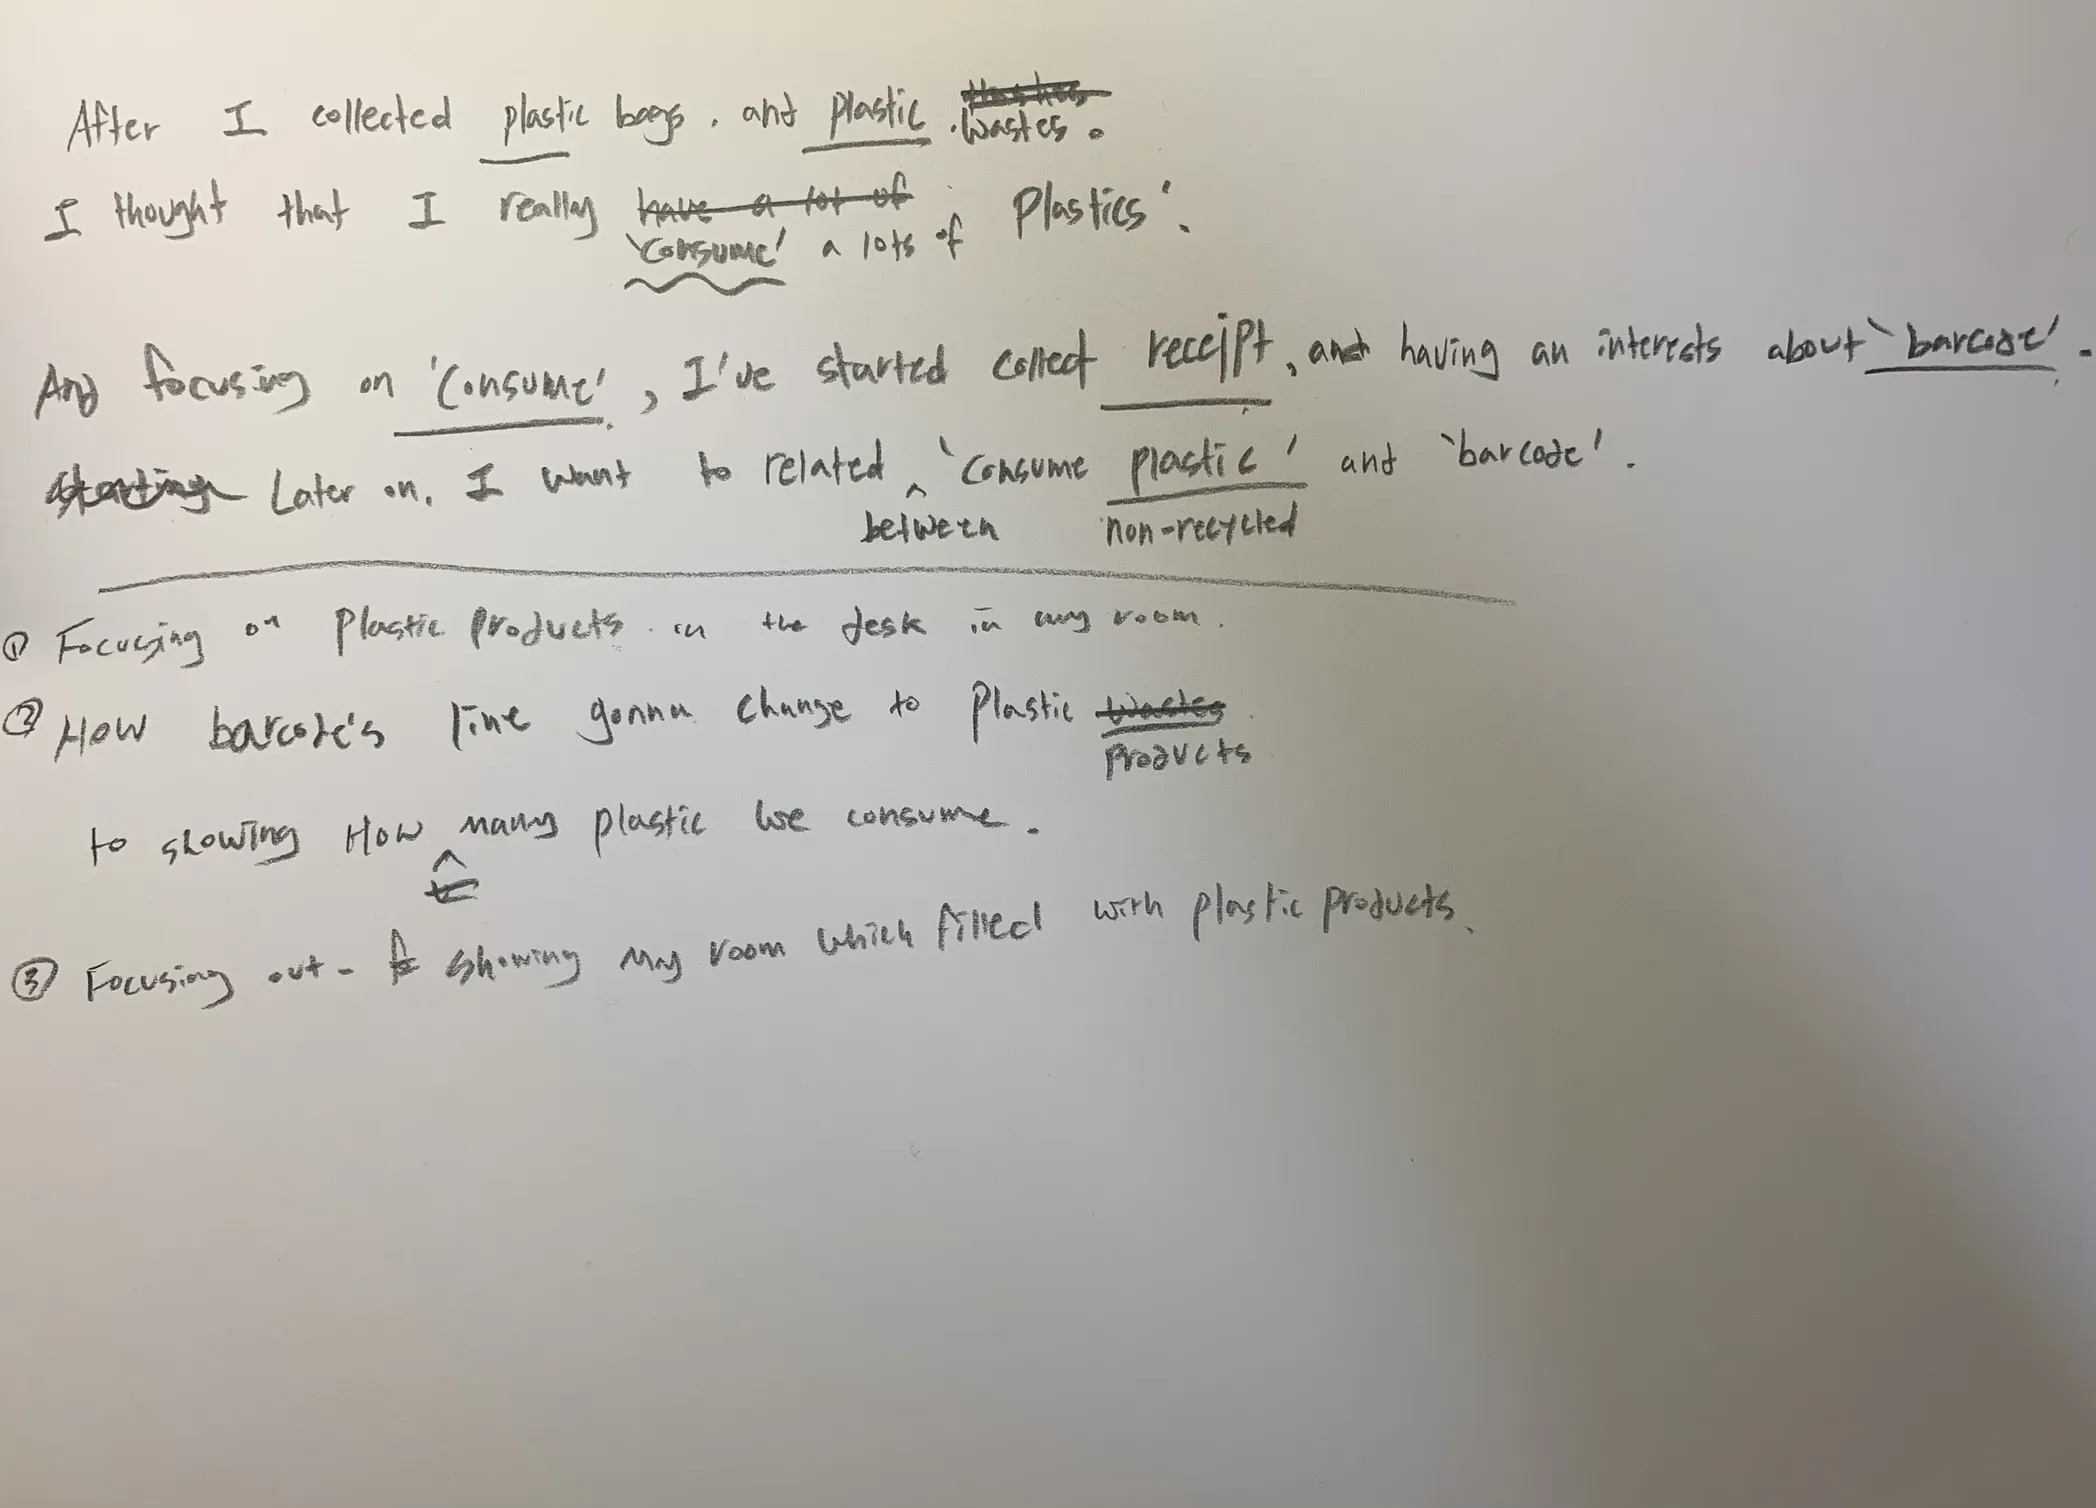 After I collected plastic bags, and plastic wastes.
I thought that I really 'consume' a lots of 'Plastics'.
And focusing on 'Consume', I've started collect receipt, and having an interests about 'barcode'.
Later on, I want to related between 'consume plastic' and 'barcode'.
non-recycled
① Focusing on Plastic products in the desk in my room.
② How barcode's line gonna change to plastic products
to showing How many plastic we consume.
③ Focusing out - showing my room which filled with plastic products.